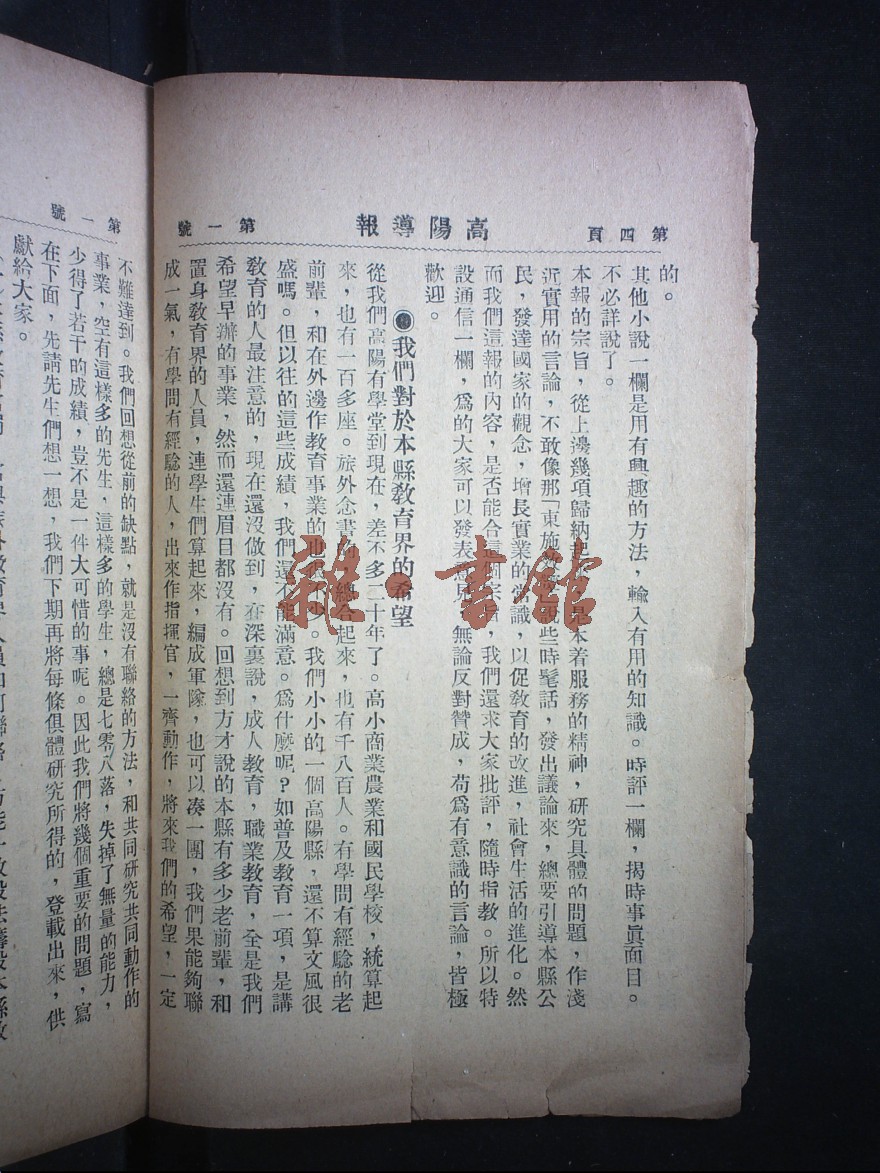 第四頁
高陽導報
第一號
的。
其他小說一欄是用有興趣的方法，輸入有用的知識。時評一欄，揭時事眞面目。
不必詳說了。
本報的宗旨，從上邊幾項歸納，是本着服務的精神，研究具體的問題，作淺
近實用的言論，不敢像那「東施，說些時髦話，發出議論來，總要引導本縣公
民，發達國家的觀念，增長實業的常識，以促敎育的改進，社會生活的進化。然
而我們這報的內容，是否能合這個宗旨，我們還求大家批評，隨時指敎。所以特
設通信一欄，爲的大家可以發表意見，無論反對贊成，苟爲有意識的言論，皆極
歡迎。
●我們對於本縣敎育界的希望
從我們高陽有學堂到現在，差不多二十年了。高小商業農業和國民學校，統算起
來，也有一百多座。旅外念書的，總合起來，也有千八百人。有學問有經驗的老
前輩，和在外邊作敎育事業的也很不少。我們小小的一個高陽縣，還不算文風很
盛嗎。但以往的這些成績，我們還不能滿意。爲什麼呢？如普及敎育一項，是講
敎育的人最注意的，現在還沒做到，在深裏說，成人敎育，職業敎育，全是我們
希望早辦的事業，然而還連眉目都沒有。回想到方才說的本縣有多少老前輩，和
置身敎育界的人員，連學生們算起來，編成軍隊，也可以凑一團，我們果能夠聯
成一氣，有學問有經驗的人，出來作指揮官，一齊動作，將來我們的希望，一定
第一號
不難達到。我們回想從前的缺點，就是沒有聯絡的方法，和共同研究共同動作的
事業，空有這樣多的先生，這樣多的學生，總是七零八落，失掉了無量的能力，
少得了若干的成績，豈不是一件大可惜的事呢。因此我們將幾個重要的問題，寫
在下面，先請先生們想一想，我們下期再將每條俱體研究所得的，登載出來，供
獻給大家。
雜·書館